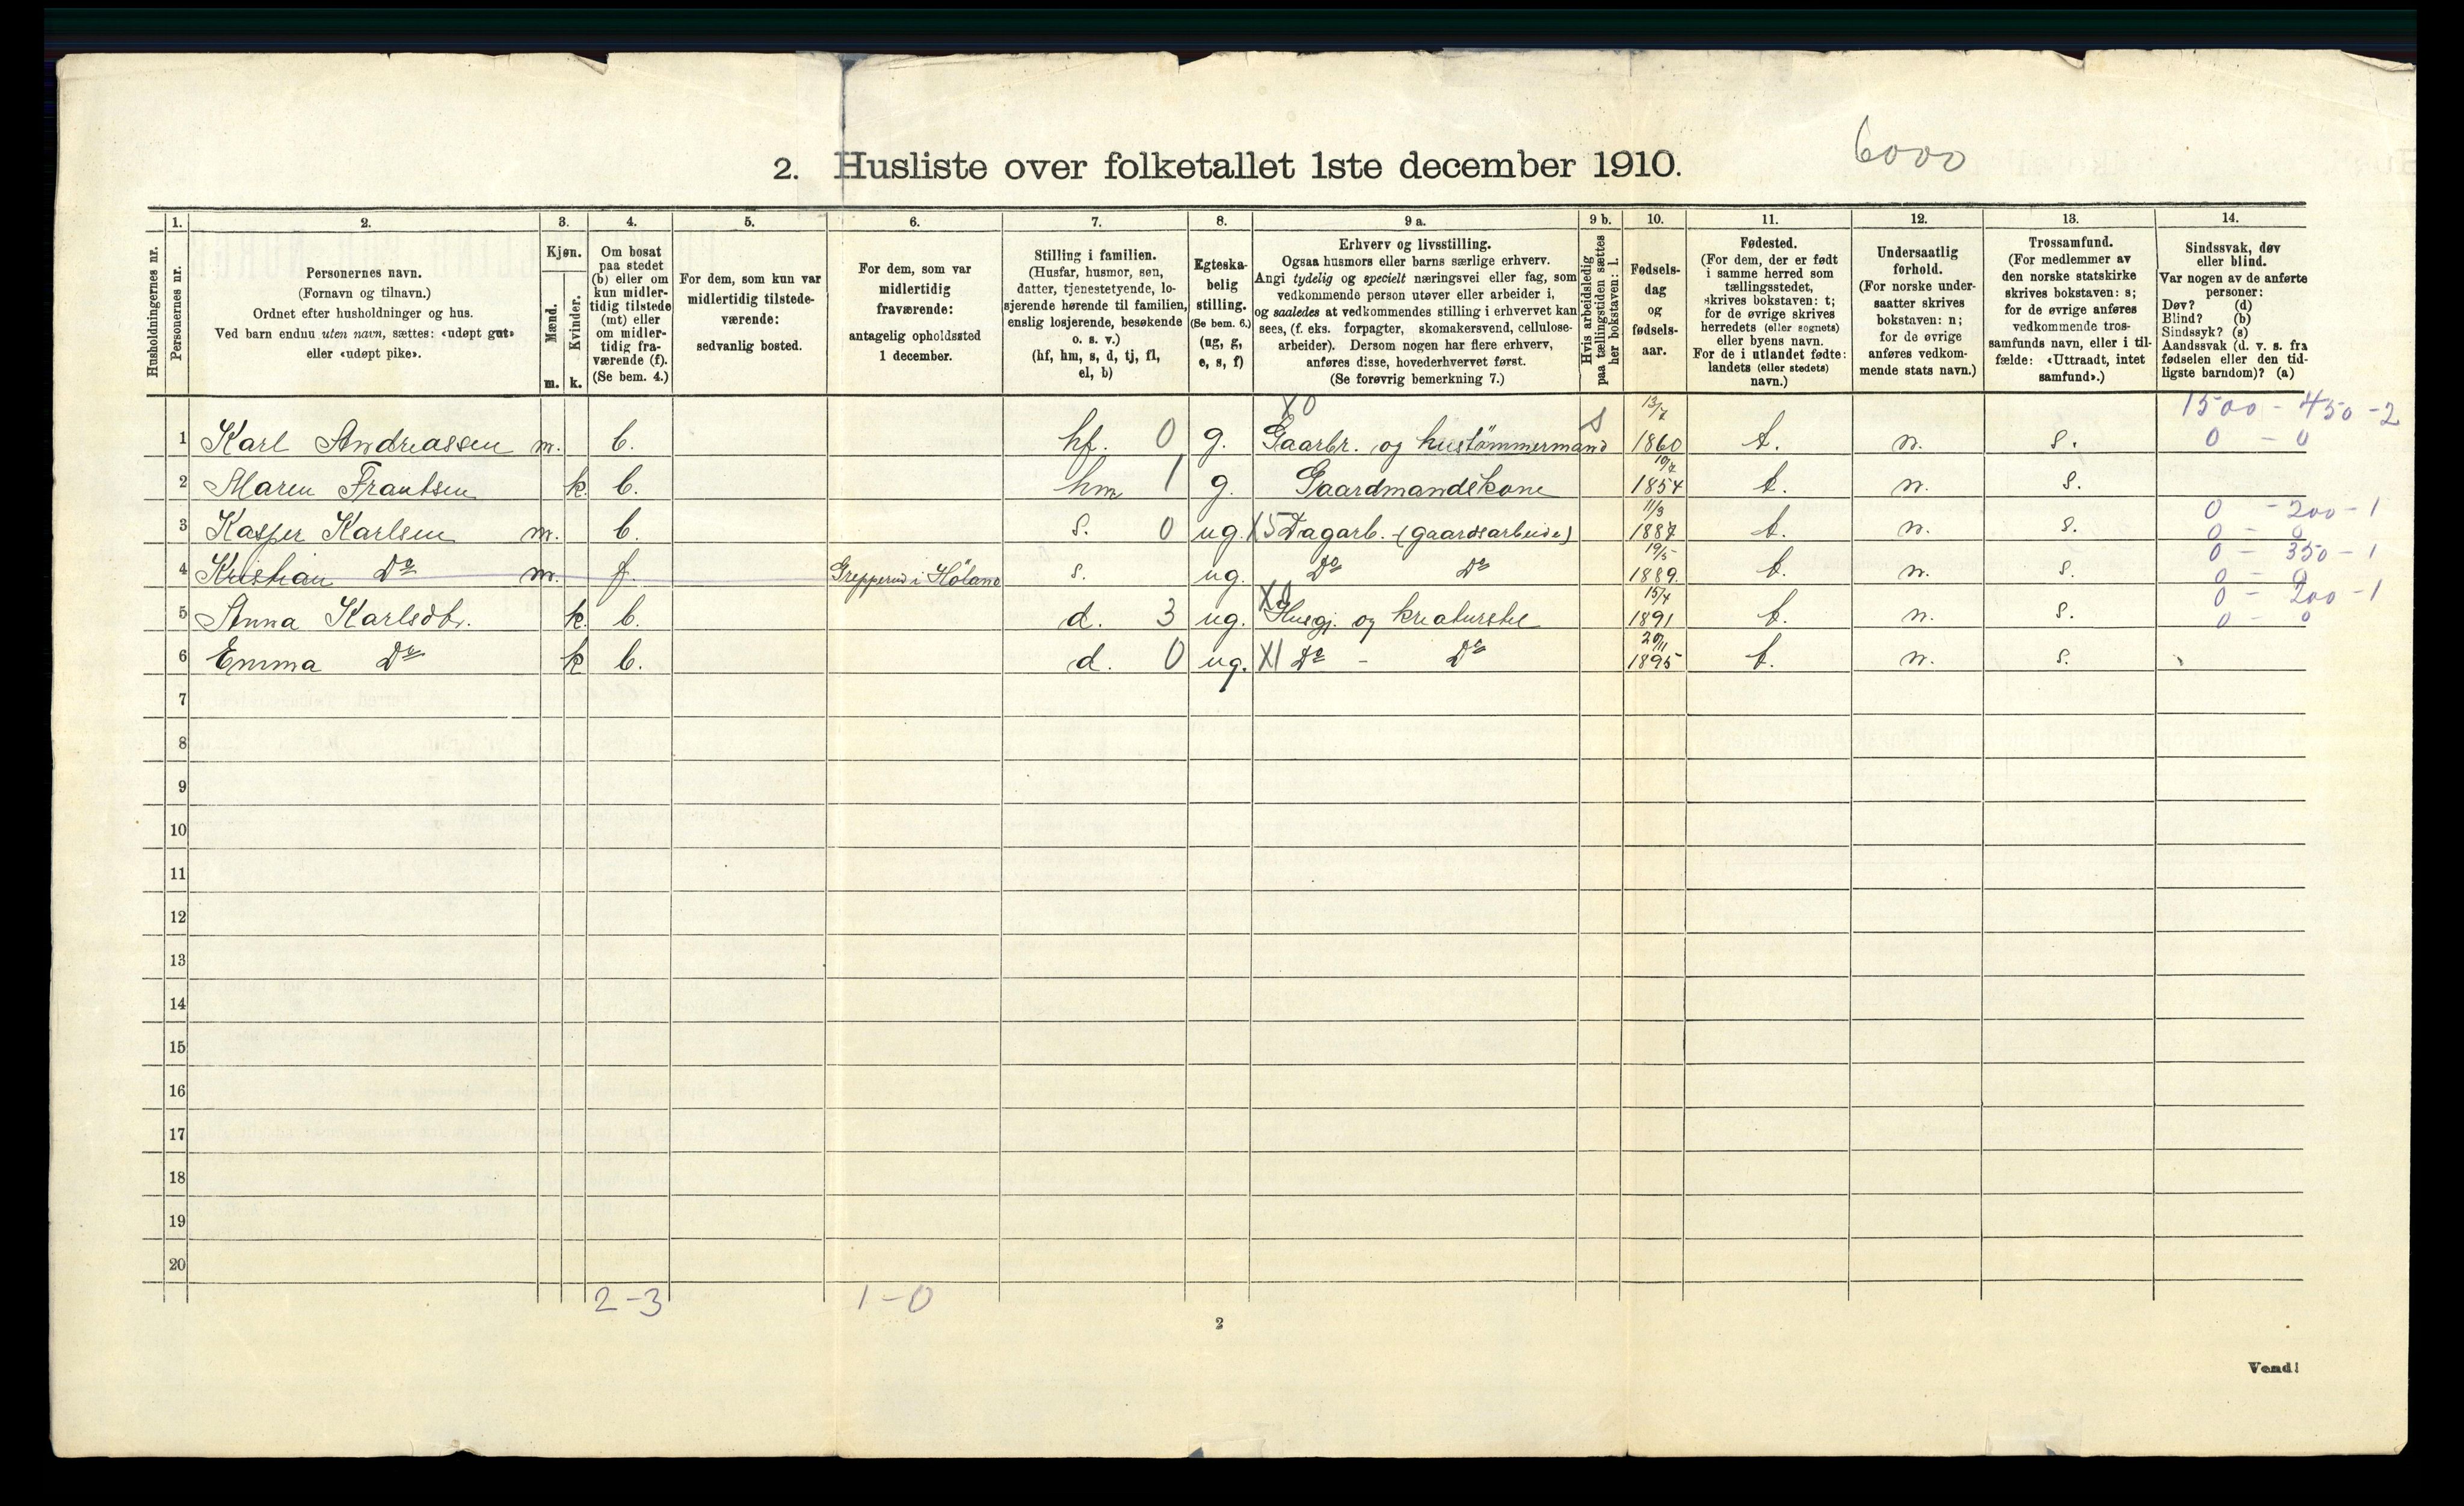 2. Husliste over folketallet 1ste december 1910.
6000
Husholdningernes nr.
1.
Personernes nr.
2.
Personernes navn.
(Fornavn og tilnavn.)
Ordnet efter husholdninger og hus.
Ved barn endnu uten navn, sættes: «udøpt gut»
eller «udøpt pike».
3.
Kjøn.
Mænd.
m.
Kvinder.
k.
4.
Om bosat
paa stedet
(b) eller om
kun midler-
tidig tilstede
(mt) eller
om midler-
tidig fra-
værende (f).
(Se bem. 4.)
5.
For dem, som kun var
midlertidig tilstede-
værende:
sedvanlig bosted.
6.
For dem, som var
midlertidig
fraværende:
antagelig opholdssted
1 december.
7.
Stilling i familien.
(Husfar, husmor, søn,
datter, tjenestetyende, lo-
sjerende hørende til familien,
enslig losjerende, besøkende
o. s. v.)
(hf, hm, s, d, tj, fl,
el, b)
8.
Egteska-
belig
stilling.
(Se bem. 6.)
(ug, g,
e, s, f)
9 a.
Erhverv og livsstilling.
Ogsaa husmors eller barns særlige erhverv.
Angi tydelig og specielt næringsvei eller fag, som
vedkommende person utøver eller arbeider i,
og saaledes at vedkommendes stilling i erhvervet kan
sees, (f. eks. forpagter, skomakersvend, cellulose-
arbeider). Dersom nogen har flere erhverv,
anføres disse, hovederhvervet først.
(Se forøvrig bemerkning 7.)
9 b.
Hvis arbeidsledig
paa tællingstiden sættes
her bokstaven: l.
10.
Fødsels-
dag
og
fødsels-
aar.
11.
Fødested.
(For dem, der er født
i samme herred som
tællingsstedet,
skrives bokstaven: t;
for de øvrige skrives
herredets (eller sognets)
eller byens navn.
For de i utlandet fødte:
landets (eller stedets)
navn.)
12.
Undersaatlig
forhold.
(For norske under-
saatter skrives
bokstaven: n;
for de øvrige
anføres vedkom-
mende stats navn.)
13.
Trossamfund.
(For medlemmer av
den norske statskirke
skrives bokstaven: s;
for de øvrige anføres
vedkommende tros-
samfunds navn, eller i til-
fælde: «Uttraadt, intet
samfund».)
14.
Sindssvak, døv
eller blind.
Var nogen av de anførte
personer:
Døv? (d)
Blind? (b)
Sindssyk? (s)
Aandssvak (d. v. s. fra
fødselen eller den tid-
ligste barndom)? (a)
X0 13/7 1500 - 450 - 2
1 Karl Andreassen m. b. hf. 0 g. Gaarbr. og hustömmermand s 1860 t. n. s. 0 - 0
2 Maren Frantsen k. b. hm 1 g. Gaardmandskone 10/7 1854 t. n. s.
3 Kasper Karlsen m. b. s. 0 ug. X5 Dagarb. (gaardsarbeide) 11/3 1887 t. n. s. 0 - 200 - 1
0 - 0
4 Kristian Do m. f. Grepperud i Höland s. ug. Do Do 19/5 1889 t. n. s. 0 - 350 - 1
0 - 0
5 Anna Karlsdtr. k. b. d. 3 ug. X0 Husgj. og kreaturstel 15/4 1891 t. n. s. 0 - 200 - 1
0 - 0
6 Emma Do k b. d. 0 ug. X1 Do - Do 20/11 1895 t. n. s.
7
8
9
10
11
12
13
14
15
16
17
18
19
20
2-3 1-0
2
Vend!